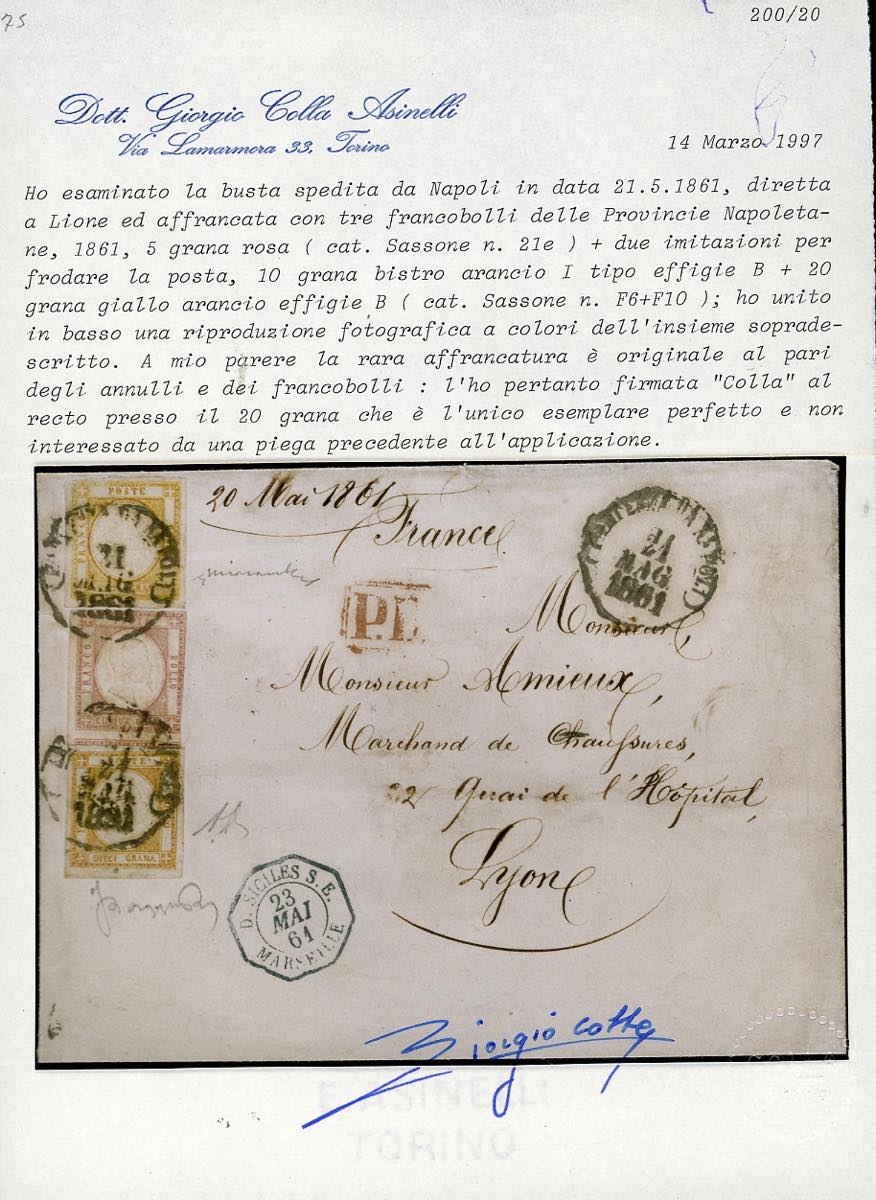 75
200/20
Dott. Giorgio Colla Asinelli
Via Lamarmora 33, Torino
14 Marzo 1997
Ho esaminato la busta spedita da Napoli in data 21.5.1861, diretta
a Lione ed affrancata con tre francobolli delle Provincie Napoleta-
ne, 1861, 5 grana rosa ( cat. Sassone n. 21e ) + due imitazioni per
frodare la posta, 10 grana bistro arancio I tipo effigie B + 20
grana giallo arancio effigie B ( cat. Sassone n. F6+F10 ); ho unito
in basso una riproduzione fotografica a colori dell'insieme soprade-
scritto. A mio parere la rara affrancatura è originale al pari
degli annulli e dei francobolli : l'ho pertanto firmata "Colla" al
recto presso il 20 grana che è l'unico esemplare perfetto e non
interessato da una piega precedente all'applicazione.
POSTE
21
MAG
1861
FRANCO
BOLLO
21
1861
DIECI GRANA
20 Mai 1861
France
21
MAG
1861
P.D.
Monsieur,
Monsieur Amieux,
Marchand de Chaussures,
22 Quai de l'Hôpital,
Lyon
D. SICILES S. E.
23
MAI
61
MARSEILLE
Giorgio Colla
E ASINELLI
TORINO